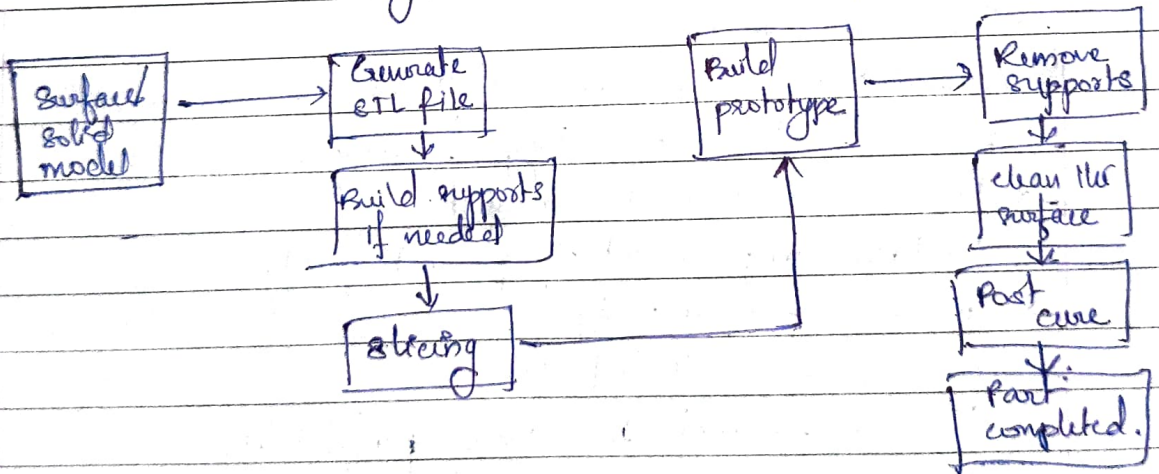 Surface/
solid
model
Generate
STL file
Build supports
if needed
slicing
Build
prototype
Remove
supports
clean the
surface
Post
cure
Part
completed.